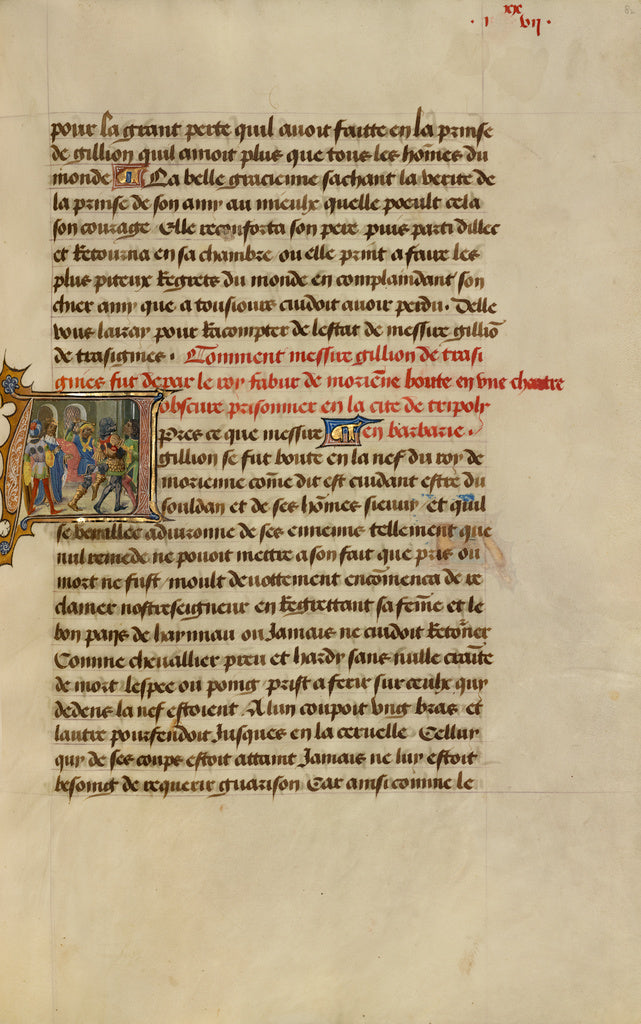 · i xx vij ·
82
pour la grant perte quil auoit faitte en la prinse
de gillion quil amoit plus que tous les hões du
monde La belle gracienne sachant la verite de
la prinse de son amy au mieulx quelle poeult cela
son courage Elle reconforta son pere puis parti dillec
et Retourna en sa chambre ou elle print a faire les
plus piteux Regrets du monde en complaindant son
chier amy que a tousiours cuidoit auoir perdu. Delle
vous lairay pour Racompter de lestat de messire gilliõ
de trasignies. Comment messire gillion de trasi
gnies fut de par le roy fabur de moriẽne boute en vne chartre
obscure prisonnier en la cite de tripoly
Apres ce que messire en barbarie.
gillion se fut boute en la nef du roy de
morienne cõme dit est cuidant estre du
souldan et de ses hões sieuuy et quil
se vey allec aduironne de ses ennemis tellement que
nul remede ne pouoit mettre a son fait que pris ou
mort ne fust moult deuottement encõmenca de re
clamer nostreseigneur en Regrettant sa feme et le
bon pays de haynnau ou Jamais ne cuidoit Retorner
Comme cheuallier preu et hardy sans nulle crainte
de mort lespee ou poing prist a ferir sur ceulx quy
dedens la nef estoient A lun coupoit vng bras et
lautre pourfendoit Jusques en la ceruelle Celluy
quy de ses coups estoit attaint Jamais ne luy estoit
besoing de requerir guarison Car ainsi comme le